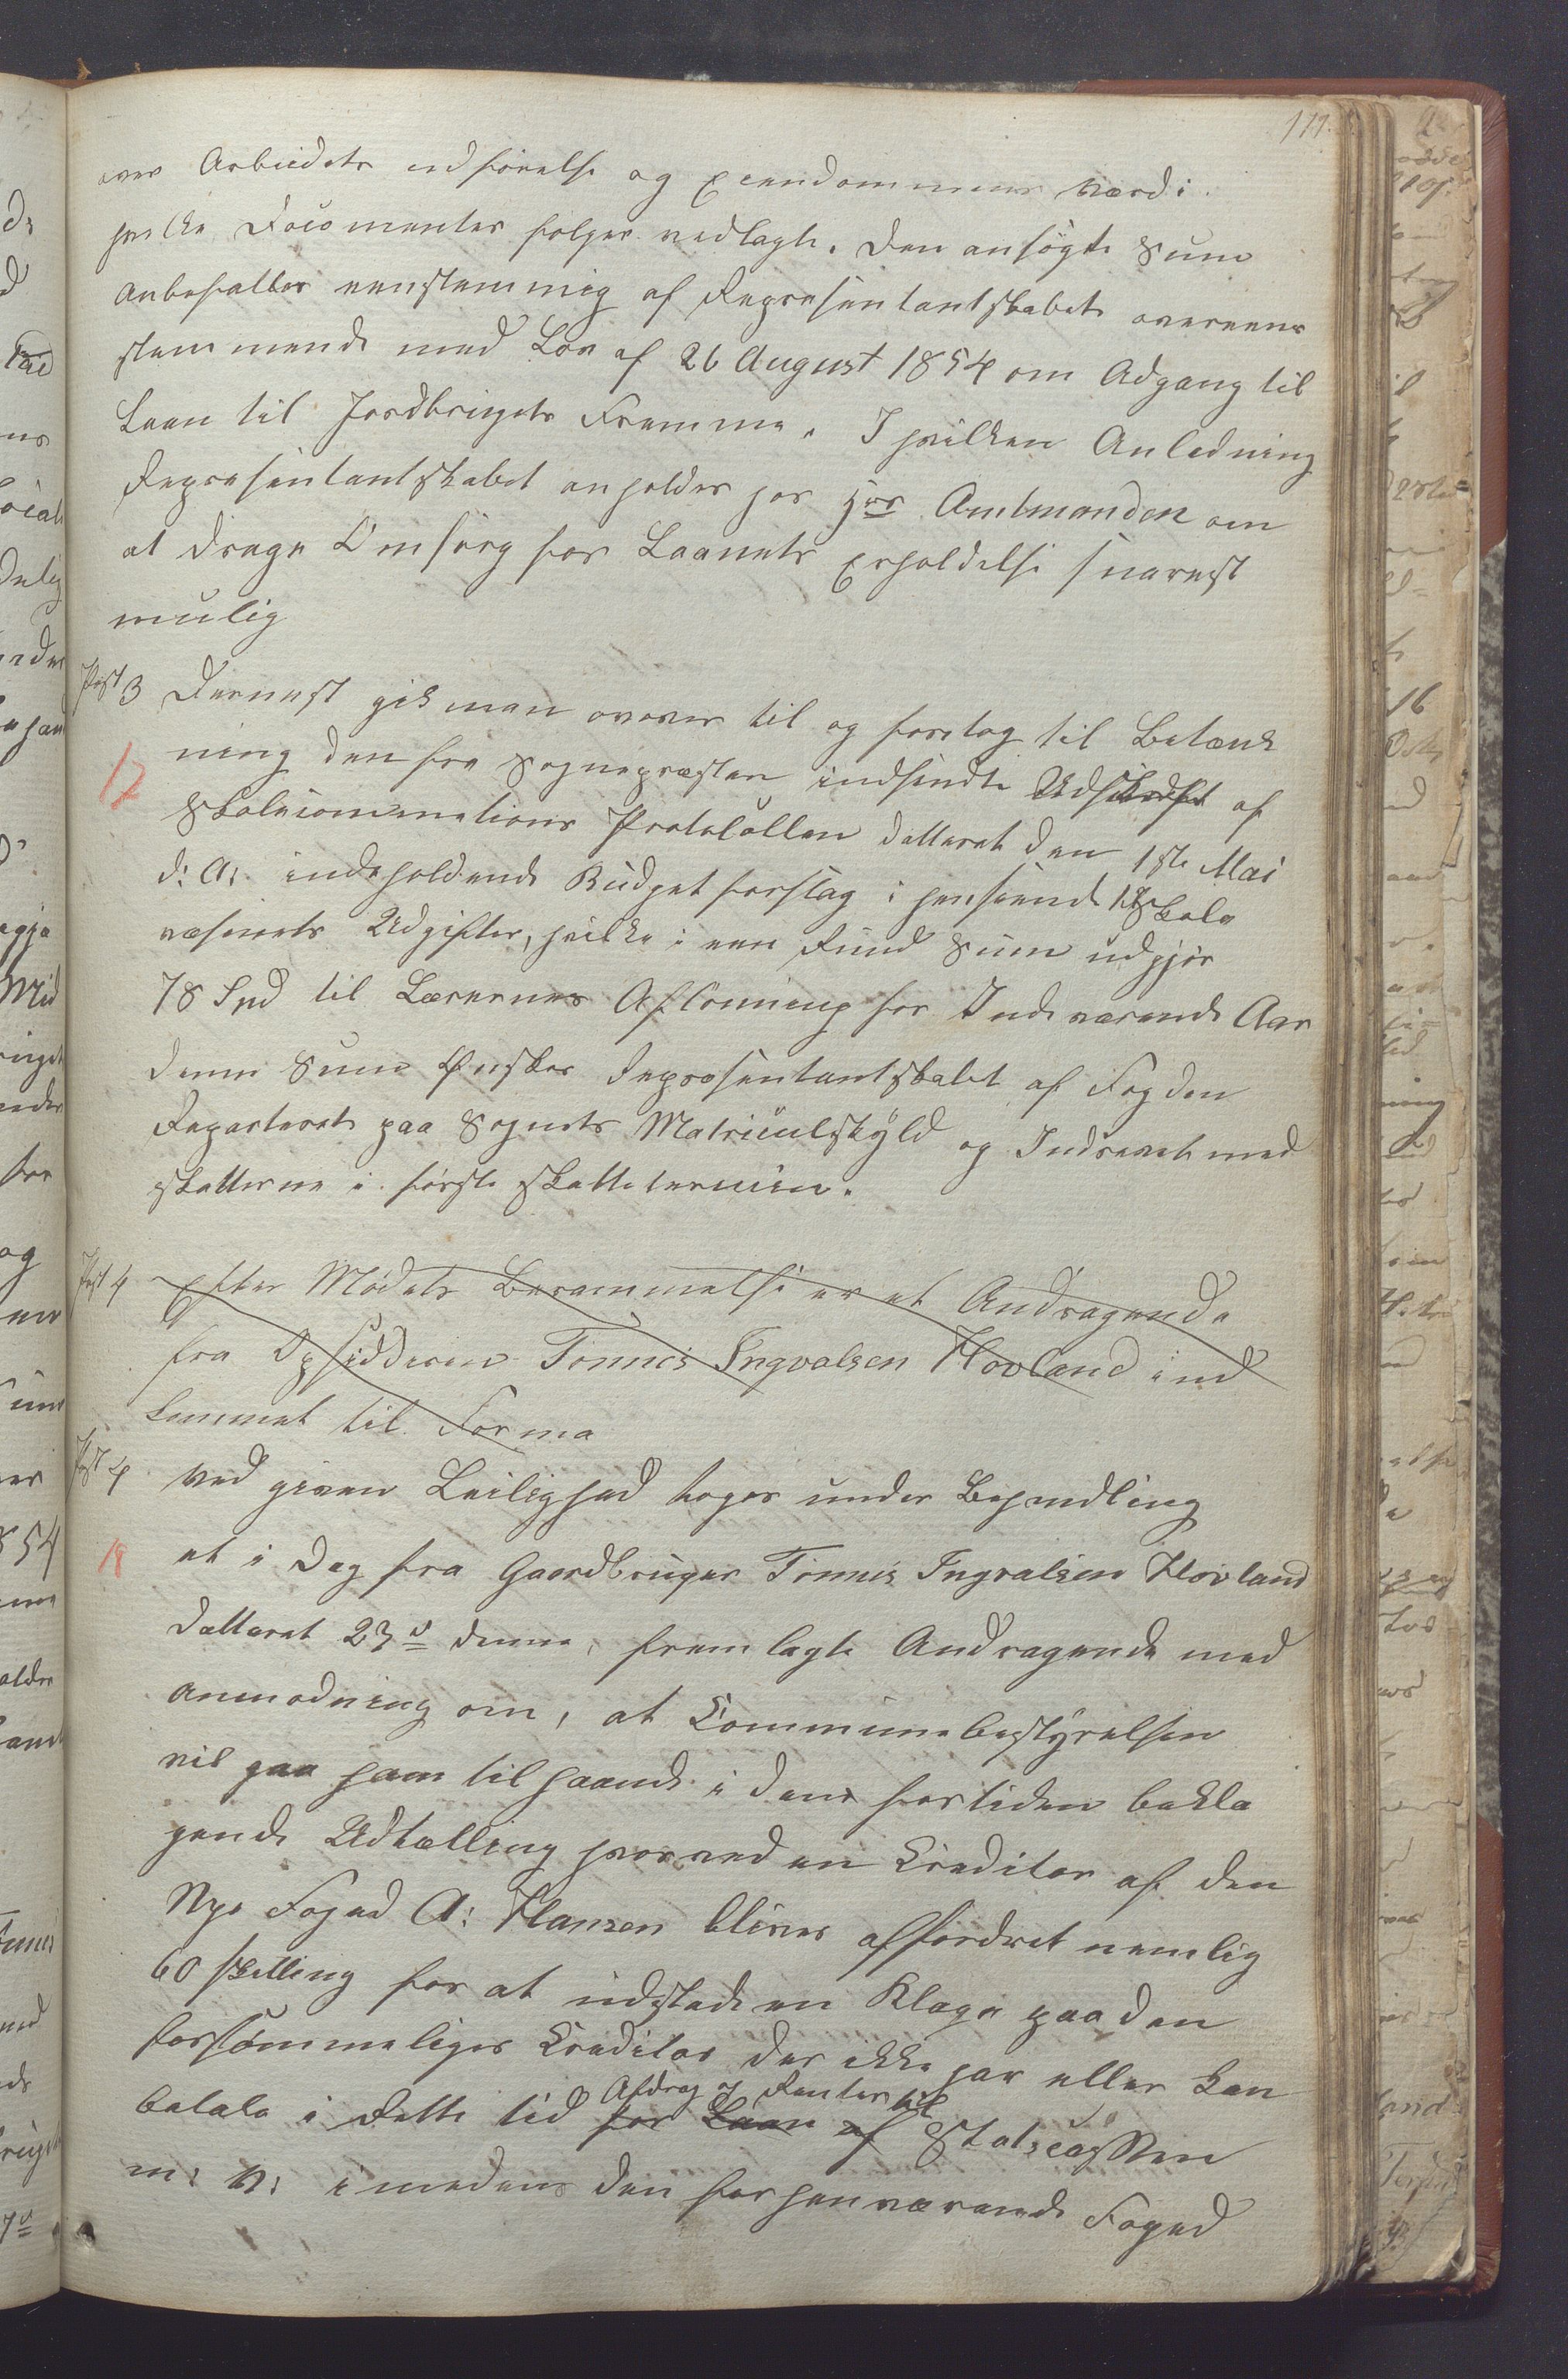 111.
over Arbeidets udførelse og Eiendommens Værdi
hvilke Documenter følger vedlagte. Den ansøgte Sum
anbefalles eenstemmig af Representantskabet overeens
stemmende med Lov af 26 August 1854 om Adgang til
Laan til Jordbrugets Fremme. I hvilken Anledning
Representantskabet anholder hos Hr Amtmanden om
at drage Omsorg for Laanets Erholdelse snarest
mulig
Post 3 Dernest gik man overer til og foretog til Betænk
17 ning den fra Sognepræsten indsendte Udskrift af
Skolecommetions Protokollen datteret den 1ste Mai
d: A: indeholdende Budget forslag i henseende til Skole
væsenets Udgifter, hvilke i een Rund Sum udgjør
78 Spd til Lærernes Aflønning for Indeværende Aar
denne Sum Ønsker Representantskabet af Fogden
Reparteret paa Sognets Matriculskyld og Indrevet med
Skatterne i første Skattetermin.
Post 4 Efter Mødets Berammelse er et Andragende
fra Opsidderen Tønnes Ingvalsen Hovland ind
kommet til Forma
Post 4 Ved given Leilighed toges under Behandling
18 et i Dag fra Gaardbruger Tønnes Ingvalsen Hovland
datteret 23d denne, fremlagte Andragende med
anmodning om, at Communebestyrelsen
vil gaa ham tilhaande i den for tiden bekla
gende Udtælling hvorved en Creditor af den
Nye Foged A: Hansen bliver affordret nemlig
60 skilling for at udstede en Klage paa den
forsømmeliges Creditor der ikke har eller kan
betale i rette tid for Laan af Afdrag og Renter til Statscassen
m: v: imedens den forhenværende Foged